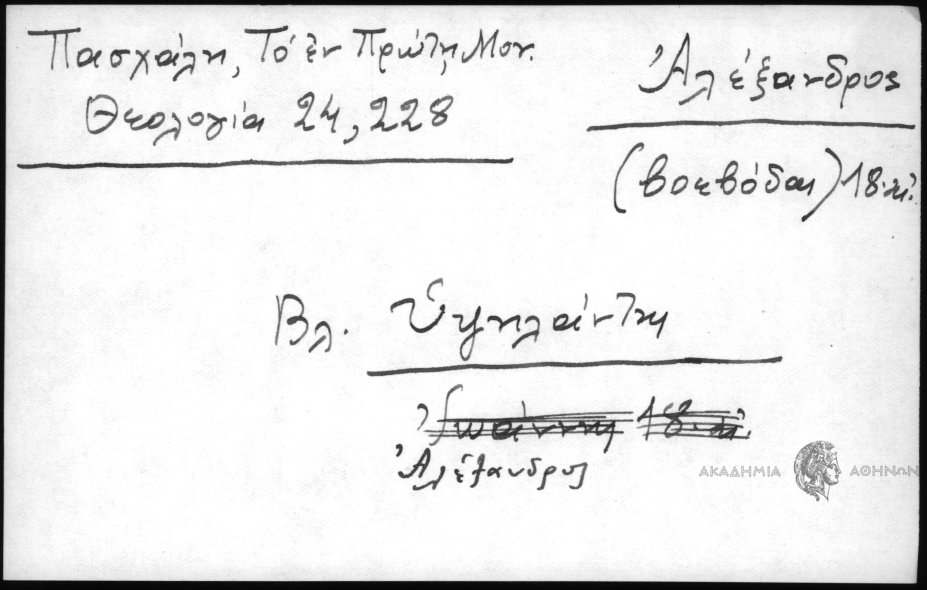 Πασχάλη, Τό ἐν Πρώτῃ Μον.
Θεολογία 24, 228
Ἀλέξανδρος
(βοεβόδας) 18 αἰ.
Βλ. Ὑψηλάντη
Ἰωάννη 18 αἰ.
Ἀλέξανδρος
ΑΚΑΔΗΜΙΑ ΑΘΗΝΩΝ